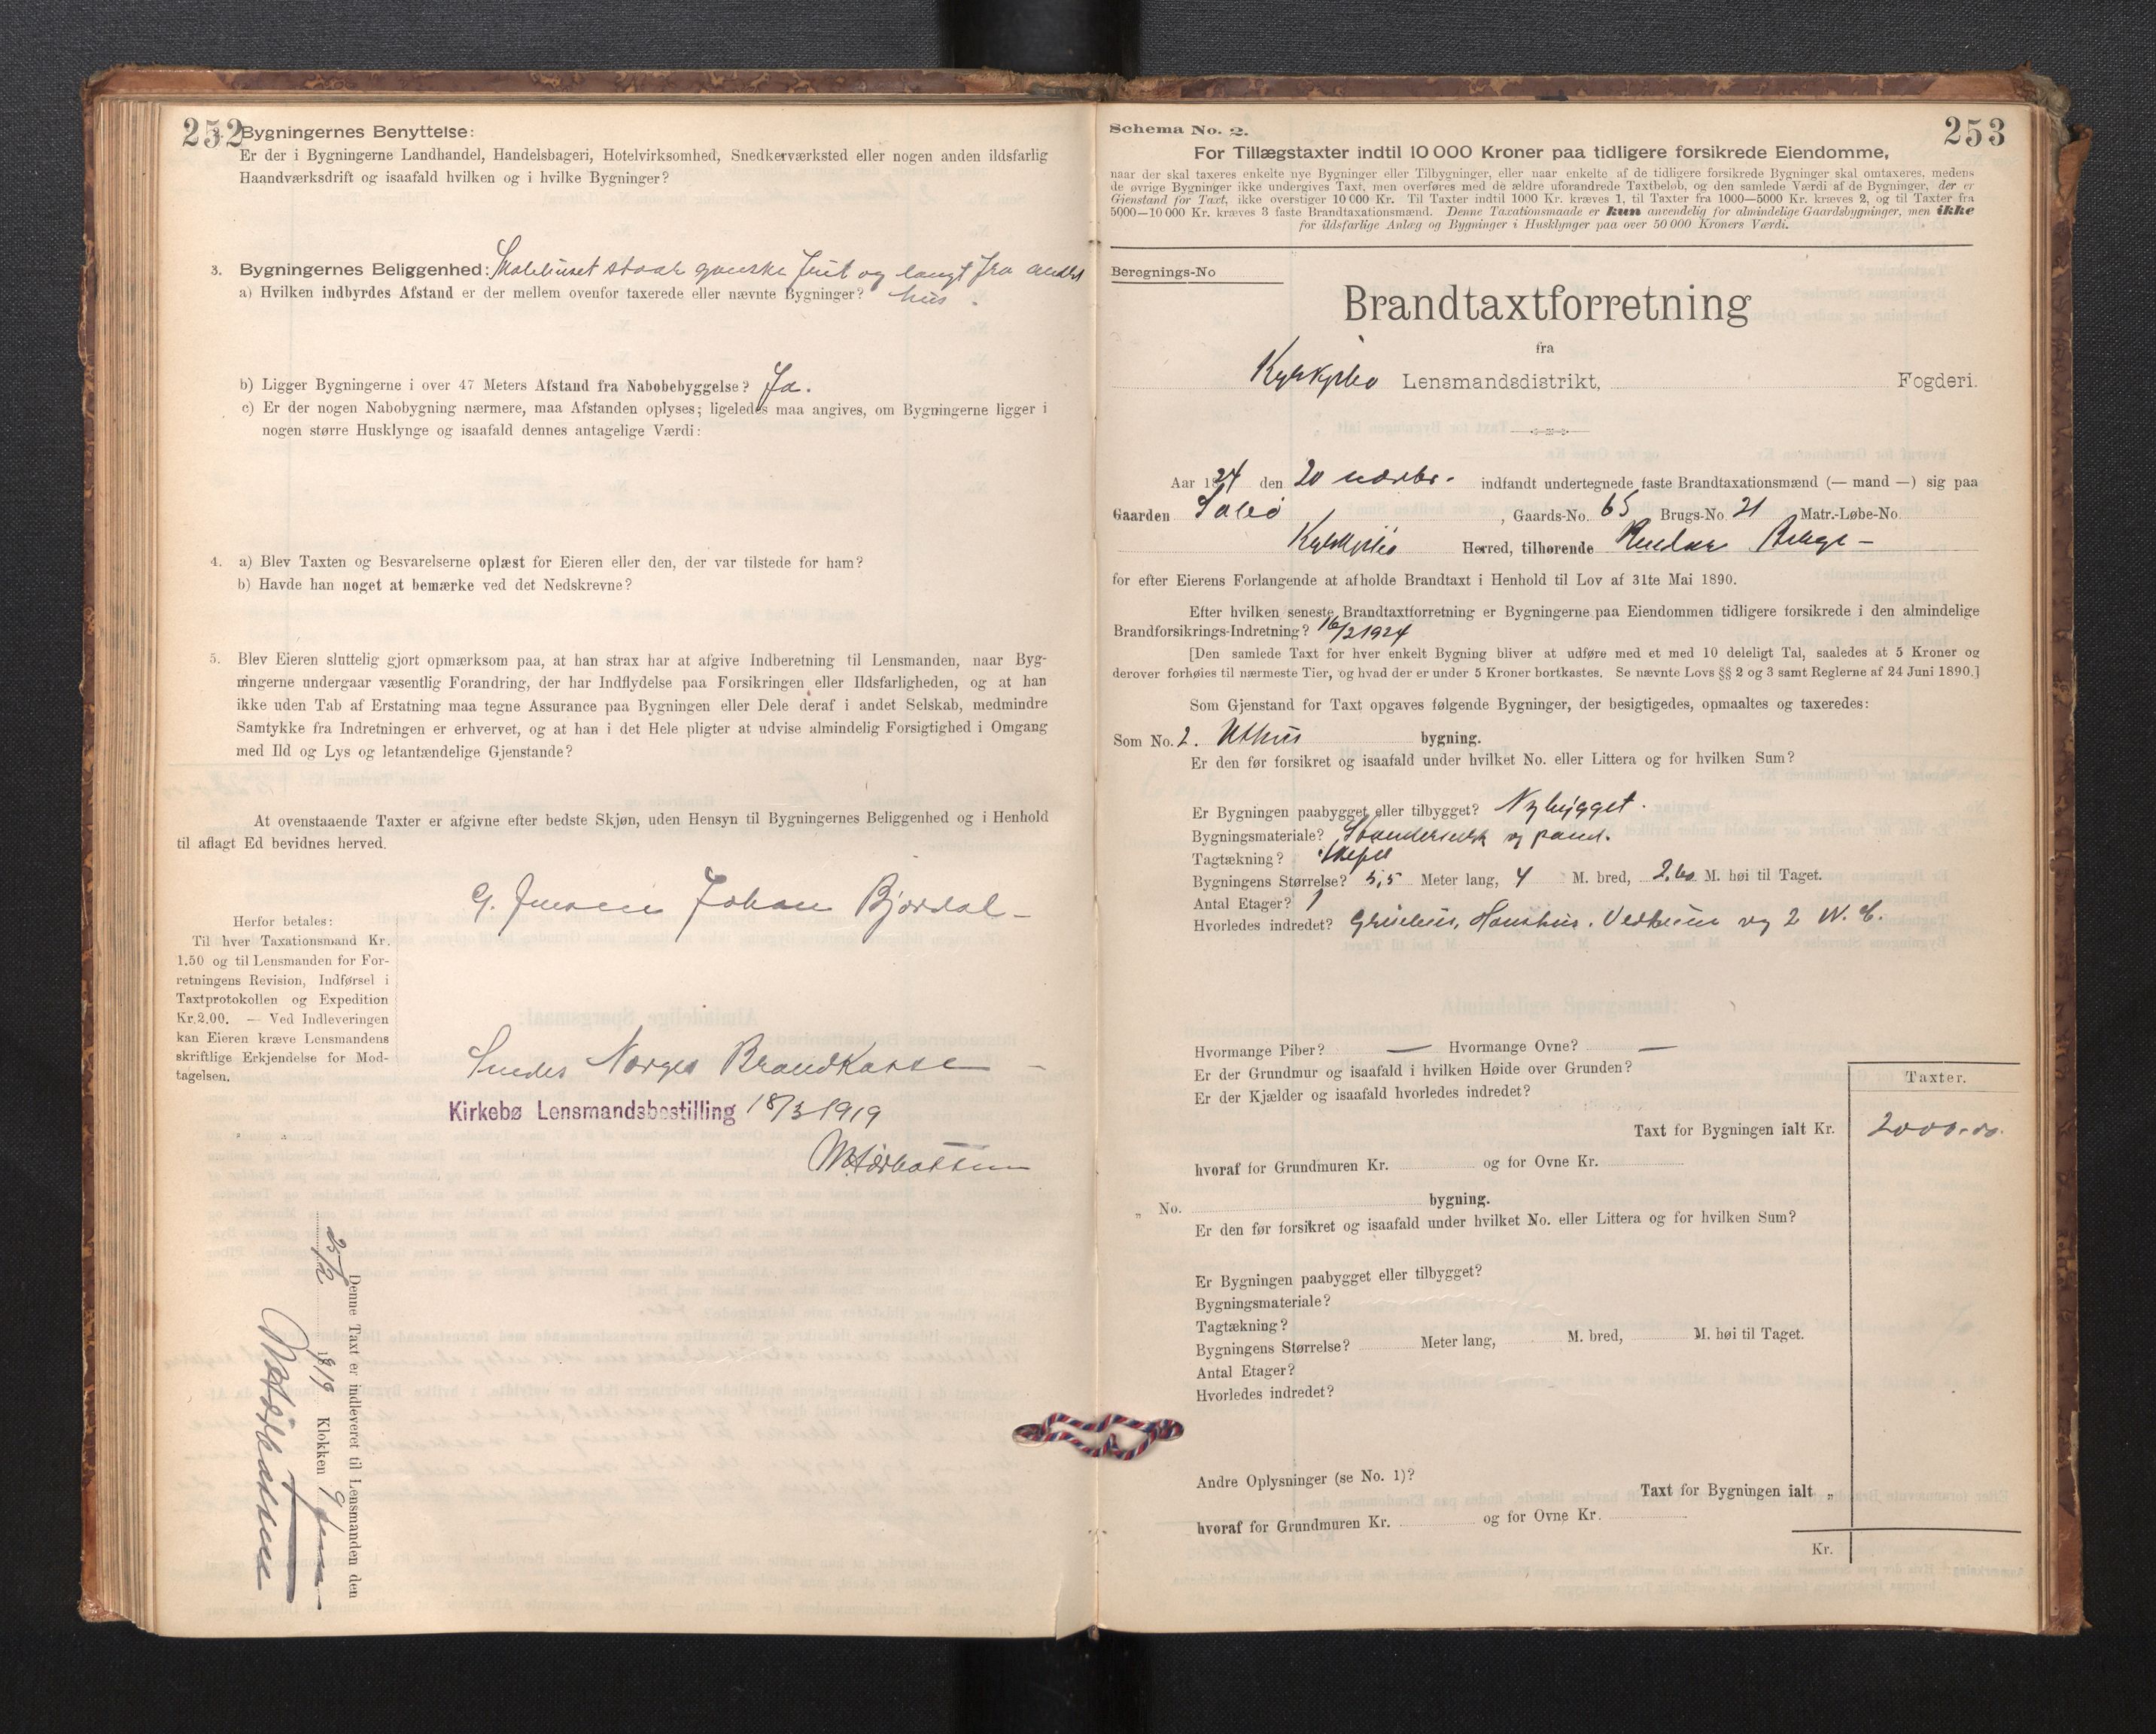 252
2. Bygningernes Benyttelse:
Er der i Bygningerne Landhandel, Handelsbageri, Hotelvirksomhed, Snedkerværksted eller nogen anden ildsfarlig
Haandværksdrift og isaafald hvilken og i hvilke Bygninger?
3. Bygningernes Beliggenhed: Skolehuset staar ganske frit og langt fra andre
a) Hvilken indbyrdes Afstand er der mellem ovenfor taxerede eller nævnte Bygninger? hus.
b) Ligger Bygningerne i over 47 Meters Afstand fra Nabobebyggelse? Ja.
c) Er der nogen Nabobygning nærmere, maa Afstanden oplyses; ligeledes maa angives, om Bygningerne ligger i
nogen større Husklynge og isaafald dennes antagelige Værdi:
4. a) Blev Taxten og Besvarelserne oplæst for Eieren eller den, der var tilstede for ham?
b) Havde han noget at bemærke ved det Nedskrevne?
5. Blev Eieren sluttelig gjort opmærksom paa, at han strax har at afgive Indberetning til Lensmanden, naar Byg-
ningerne undergaar væsentlig Forandring, der har Indflydelse paa Forsikringen eller Ildsfarligheden, og at han
ikke uden Tab af Erstatning maa tegne Assurance paa Bygningen eller Dele deraf i andet Selskab, medmindre
Samtykke fra Indretningen er erhvervet, og at han i det Hele pligter at udvise almindelig Forsigtighed i Omgang
med Ild og Lys og letantændelige Gjenstande?
At ovenstaaende Taxter er afgivne efter bedste Skjøn, uden Hensyn til Bygningernes Beliggenhed og i Henhold
til aflagt Ed bevidnes herved.
G. Johan Bjordal
Herfor betales:
Til hver Taxationsmand Kr.
1.50 og til Lensmanden for For-
retningens Revision, Indførsel i
Taxtprotokollen og Expedition
Kr. 2.00. — Ved Indleveringen
kan Eieren kræve Lensmandens
skriftlige Erkjendelse for Mod-
tagelsen.
Sendes Norges Brandkasse –
Kirkebø Lensmandsbestilling 18/3 1919
Denne Taxt er indleveret til Lensmanden den
25/2 1919 Klokken 9
253
Schema No. 2.
For Tillægstaxter indtil 10 000 Kroner paa tidligere forsikrede Eiendomme,
naar der skal taxeres enkelte nye Bygninger eller Tilbygninger, eller naar enkelte af de tidligere forsikrede Bygninger skal omtaxeres, medens
de øvrige Bygninger ikke undergives Taxt, men overføres med de ældre uforandrede Taxtbeløb, og den samlede Værdi af de Bygninger, der er
Gjenstand for Taxt, ikke overstiger 10 000 Kr. Til Taxter indtil 1000 Kr. kræves 1, til Taxter fra 1000—5000 Kr. kræves 2, og til Taxter fra
5000—10 000 Kr. kræves 3 faste Brandtaxationsmænd. Denne Taxationsmaade er kun anvendelig for almindelige Gaardsbygninger, men ikke
for ildsfarlige Anlæg og Bygninger i Husklynger paa over 50 000 Kroners Værdi.
Beregnings-No
Brandtaxtforretning
fra
Kyrkjebø Lensmandsdistrikt, Fogderi.
Aar 1924 den 20 novbr. indfandt undertegnede faste Brandtaxationsmænd (— mand —) sig paa
Gaarden , Gaards-No. 65 Brugs-No 21 Matr.-Løbe-No.
Kyrkjebø Herred, tilhørende
for efter Eierens Forlangende at afholde Brandtaxt i Henhold til Lov af 31te Mai 1890.
Efter hvilken seneste Brandtaxtforretning er Bygningerne paa Eiendommen tidligere forsikrede i den almindelige
Brandforsikrings-Indretning? 16/2 1924
[Den samlede Taxt for hver enkelt Bygning bliver at udføre med et med 10 deleligt Tal, saaledes at 5 Kroner og
derover forhøies til nærmeste Tier, og hvad der er under 5 Kroner bortkastes. Se nævnte Lovs §§ 2 og 3 samt Reglerne af 24 Juni 1890.]
Som Gjenstand for Taxt opgaves følgende Bygninger, der besigtigedes, opmaaltes og taxeredes:
Som No. 2. Uthus bygning.
Er den før forsikret og isaafald under hvilket No. eller Littera og for hvilken Sum?
Er Bygningen paabygget eller tilbygget? Nybygget.
Bygningsmateriale? Stenderverk og panel.
Tagtækning? Skifer
Bygningens Størrelse? 5,5 Meter lang, 4 M. bred, 2,60 M. høi til Taget.
Antal Etager? 1
Hvorledes indredet? Grisehus, Hønshus, Vedheim og 2 W. C.
Hvormange Piber? — Hvormange Ovne? —
Er der Grundmur og isaafald i hvilken Høide over Grunden?
Er der Kjælder og isaafald hvorledes indredet?
Taxter.
Taxt for Bygningen ialt Kr. 2000.00.
hvoraf for Grundmuren Kr. og for Ovne Kr.
„ No. bygning.
Er den før forsikret og isaafald under hvilket No. eller Littera og for hvilken Sum?
Er Bygningen paabygget eller tilbygget?
Bygningsmateriale?
Tagtækning?
Bygningens Størrelse? Meter lang, M. bred, M. høi til Taget.
Antal Etager?
Hvorledes indredet?
Andre Oplysninger (se No. 1)?
Taxt for Bygningen ialt „
hvoraf for Grundmuren Kr. og for Ovne Kr.
Kr.